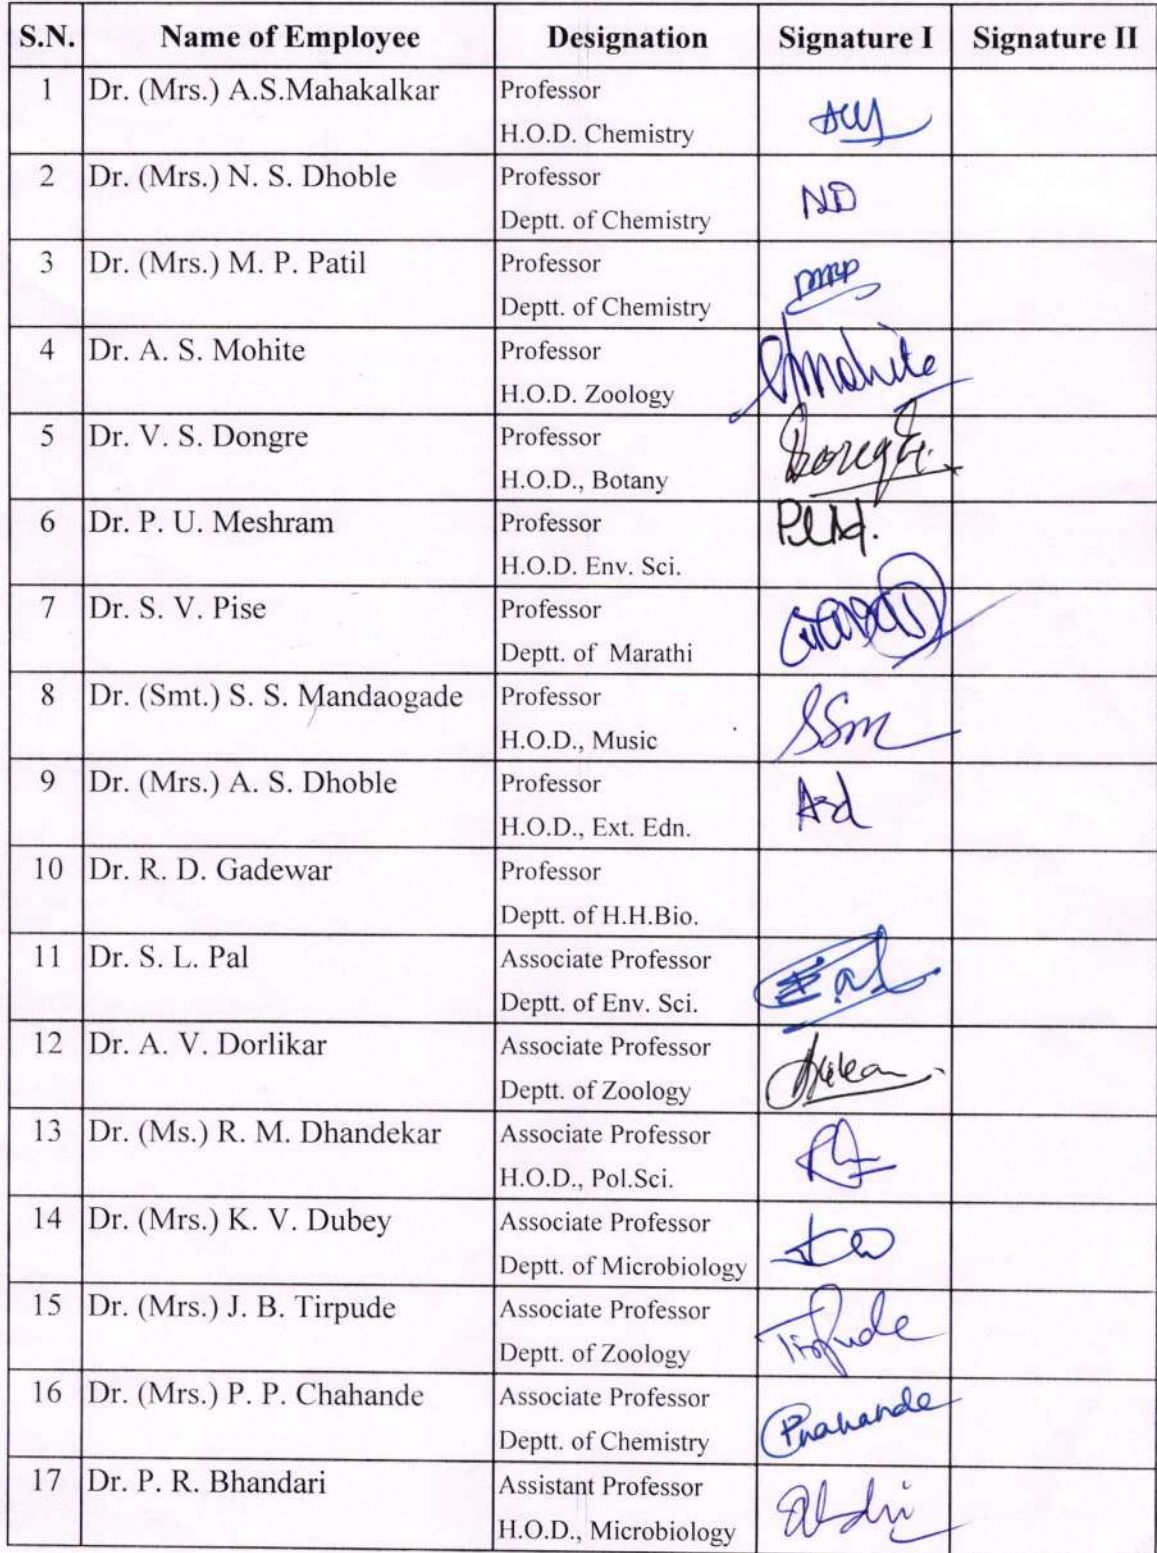 S.N. Name of Employee Designation Signature I Signature II
1 Dr. (Mrs.) A.S.Mahakalkar Professor
H.O.D. Chemistry
2 Dr. (Mrs.) N. S. Dhoble Professor ND
Deptt. of Chemistry
3 Dr. (Mrs.) M. P. Patil Professor
Deptt. of Chemistry
4 Dr. A. S. Mohite Professor
H.O.D. Zoology
5 Dr. V. S. Dongre Professor
H.O.D., Botany
6 Dr. P. U. Meshram Professor
H.O.D. Env. Sci.
7 Dr. S. V. Pise Professor
Deptt. of Marathi
8 Dr. (Smt.) S. S. Mandaogade Professor SSm
H.O.D., Music
9 Dr. (Mrs.) A. S. Dhoble Professor Asd
H.O.D., Ext. Edn.
10 Dr. R. D. Gadewar Professor
Deptt. of H.H.Bio.
11 Dr. S. L. Pal Associate Professor
Deptt. of Env. Sci.
12 Dr. A. V. Dorlikar Associate Professor
Deptt. of Zoology
13 Dr. (Ms.) R. M. Dhandekar Associate Professor
H.O.D., Pol.Sci.
14 Dr. (Mrs.) K. V. Dubey Associate Professor
Deptt. of Microbiology
15 Dr. (Mrs.) J. B. Tirpude Associate Professor Tirpude
Deptt. of Zoology
16 Dr. (Mrs.) P. P. Chahande Associate Professor
Deptt. of Chemistry
17 Dr. P. R. Bhandari Assistant Professor
H.O.D., Microbiology